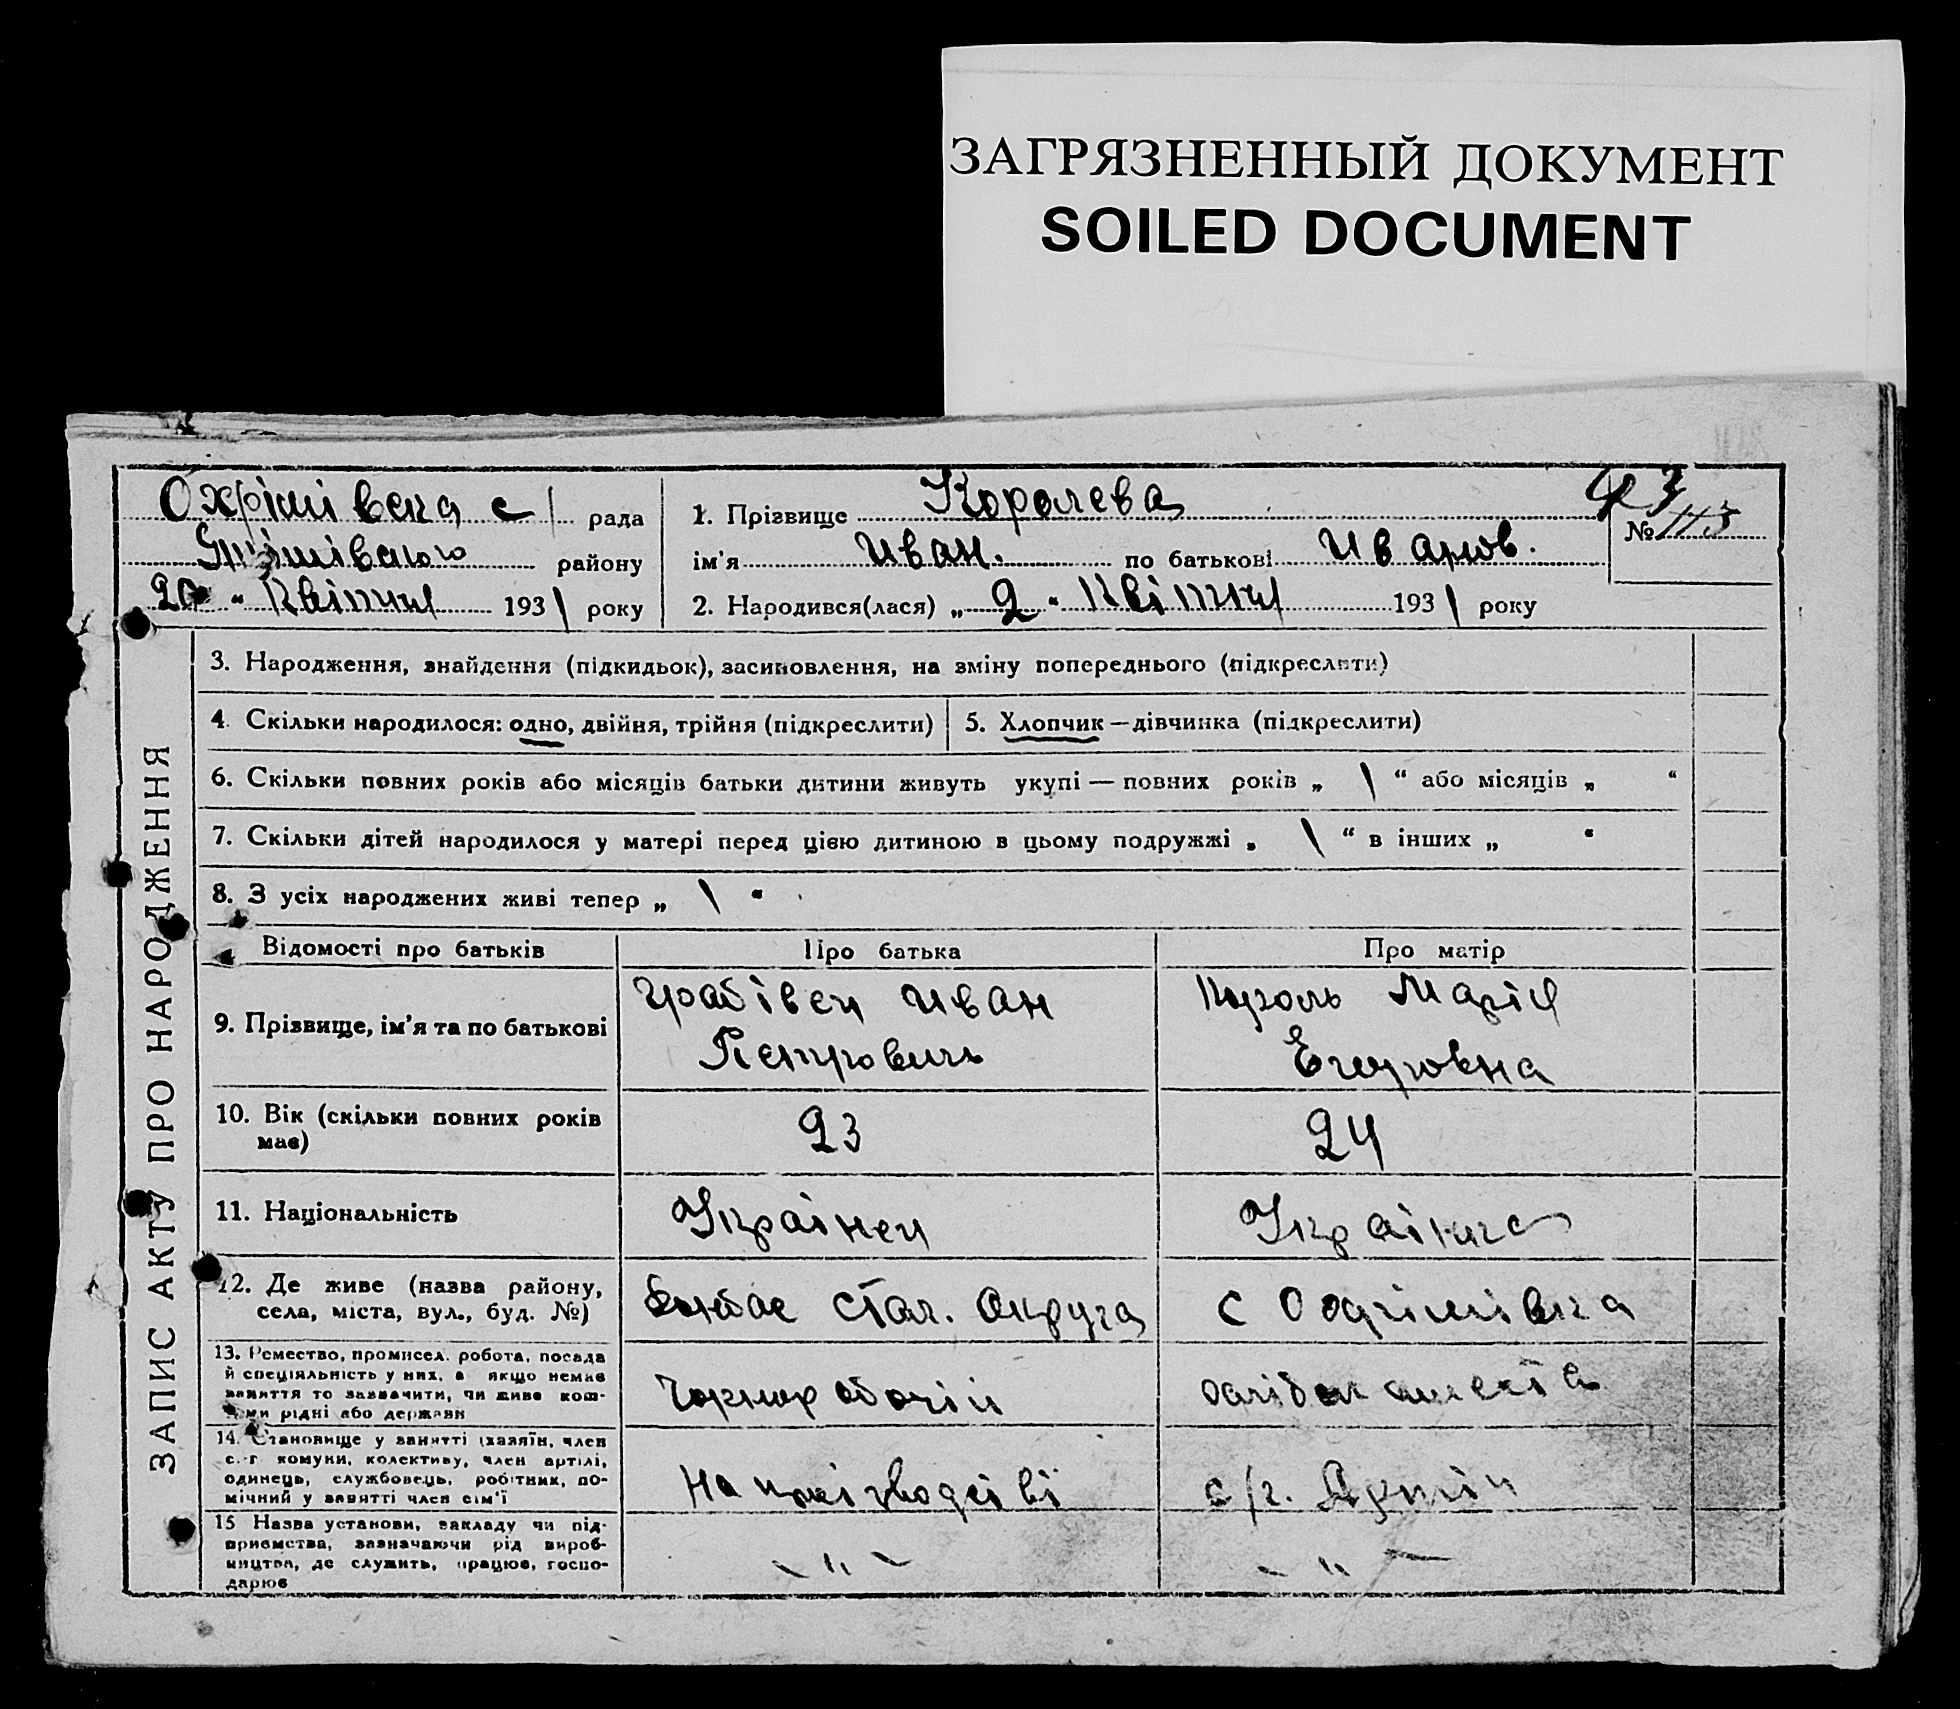 ЗАГРЯЗНЕННЫЙ ДОКУМЕНТ
SOILED DOCUMENT
Охрімівска с/ рада
району
20 " Квітня 1931 року
1. Прізвище Королева
ім'я Иван. по батькові Иванов.
№ 113
2. Народився(лася) „ 2 " Квітня 1931 року
ЗАПИС АКТУ ПРО НАРОДЖЕННЯ
3. Народження, знайдення (підкидьок), засиновлення, на зміну попереднього (підкреслити)
4. Скільки народилося: одно, двійня, трійня (підкреслити)
5. Хлопчик — дівчинка (підкреслити)
6. Скільки повних років або місяців батьки дитини живуть укупі — повних років „ 1 “ або місяців „ “
7. Скільки дітей народилося у матері перед цією дитиною в цьому подружжі „ 1 “ в інших „ “
8. З усіх народжених живі тепер „ 1 “
Відомості про батьків
Про батька
Про матір
9. Прізвище, ім'я та по батькові
Иван
Петрович
Король Марія
Егоровна
10. Вік (скільки повних років
має)
23
24
11. Національність
Українец
Українка
12. Де живе (назва району,
села, міста, вул., буд. №)
Донбас Стал. Округа
с Охрімівка
13. Ремество, промисел, робота, посада
й спеціяльність у них, а якщо немає
заняття то зазначити, чи живе кош-
тами рідні або держави
Чорноробочій
14. Становище у занятті (хазяїн, член
с.-г. комуни, колективу, член артілі,
одинець, службовець, робітник, по-
мічний у занятті член сім'ї
На
с/г. Артіл
15 Назва установи, закладу чи під-
приємства, зазначаючи рід вироб-
ництва, де служить, працює, госпо-
дарює
- " -
- " -